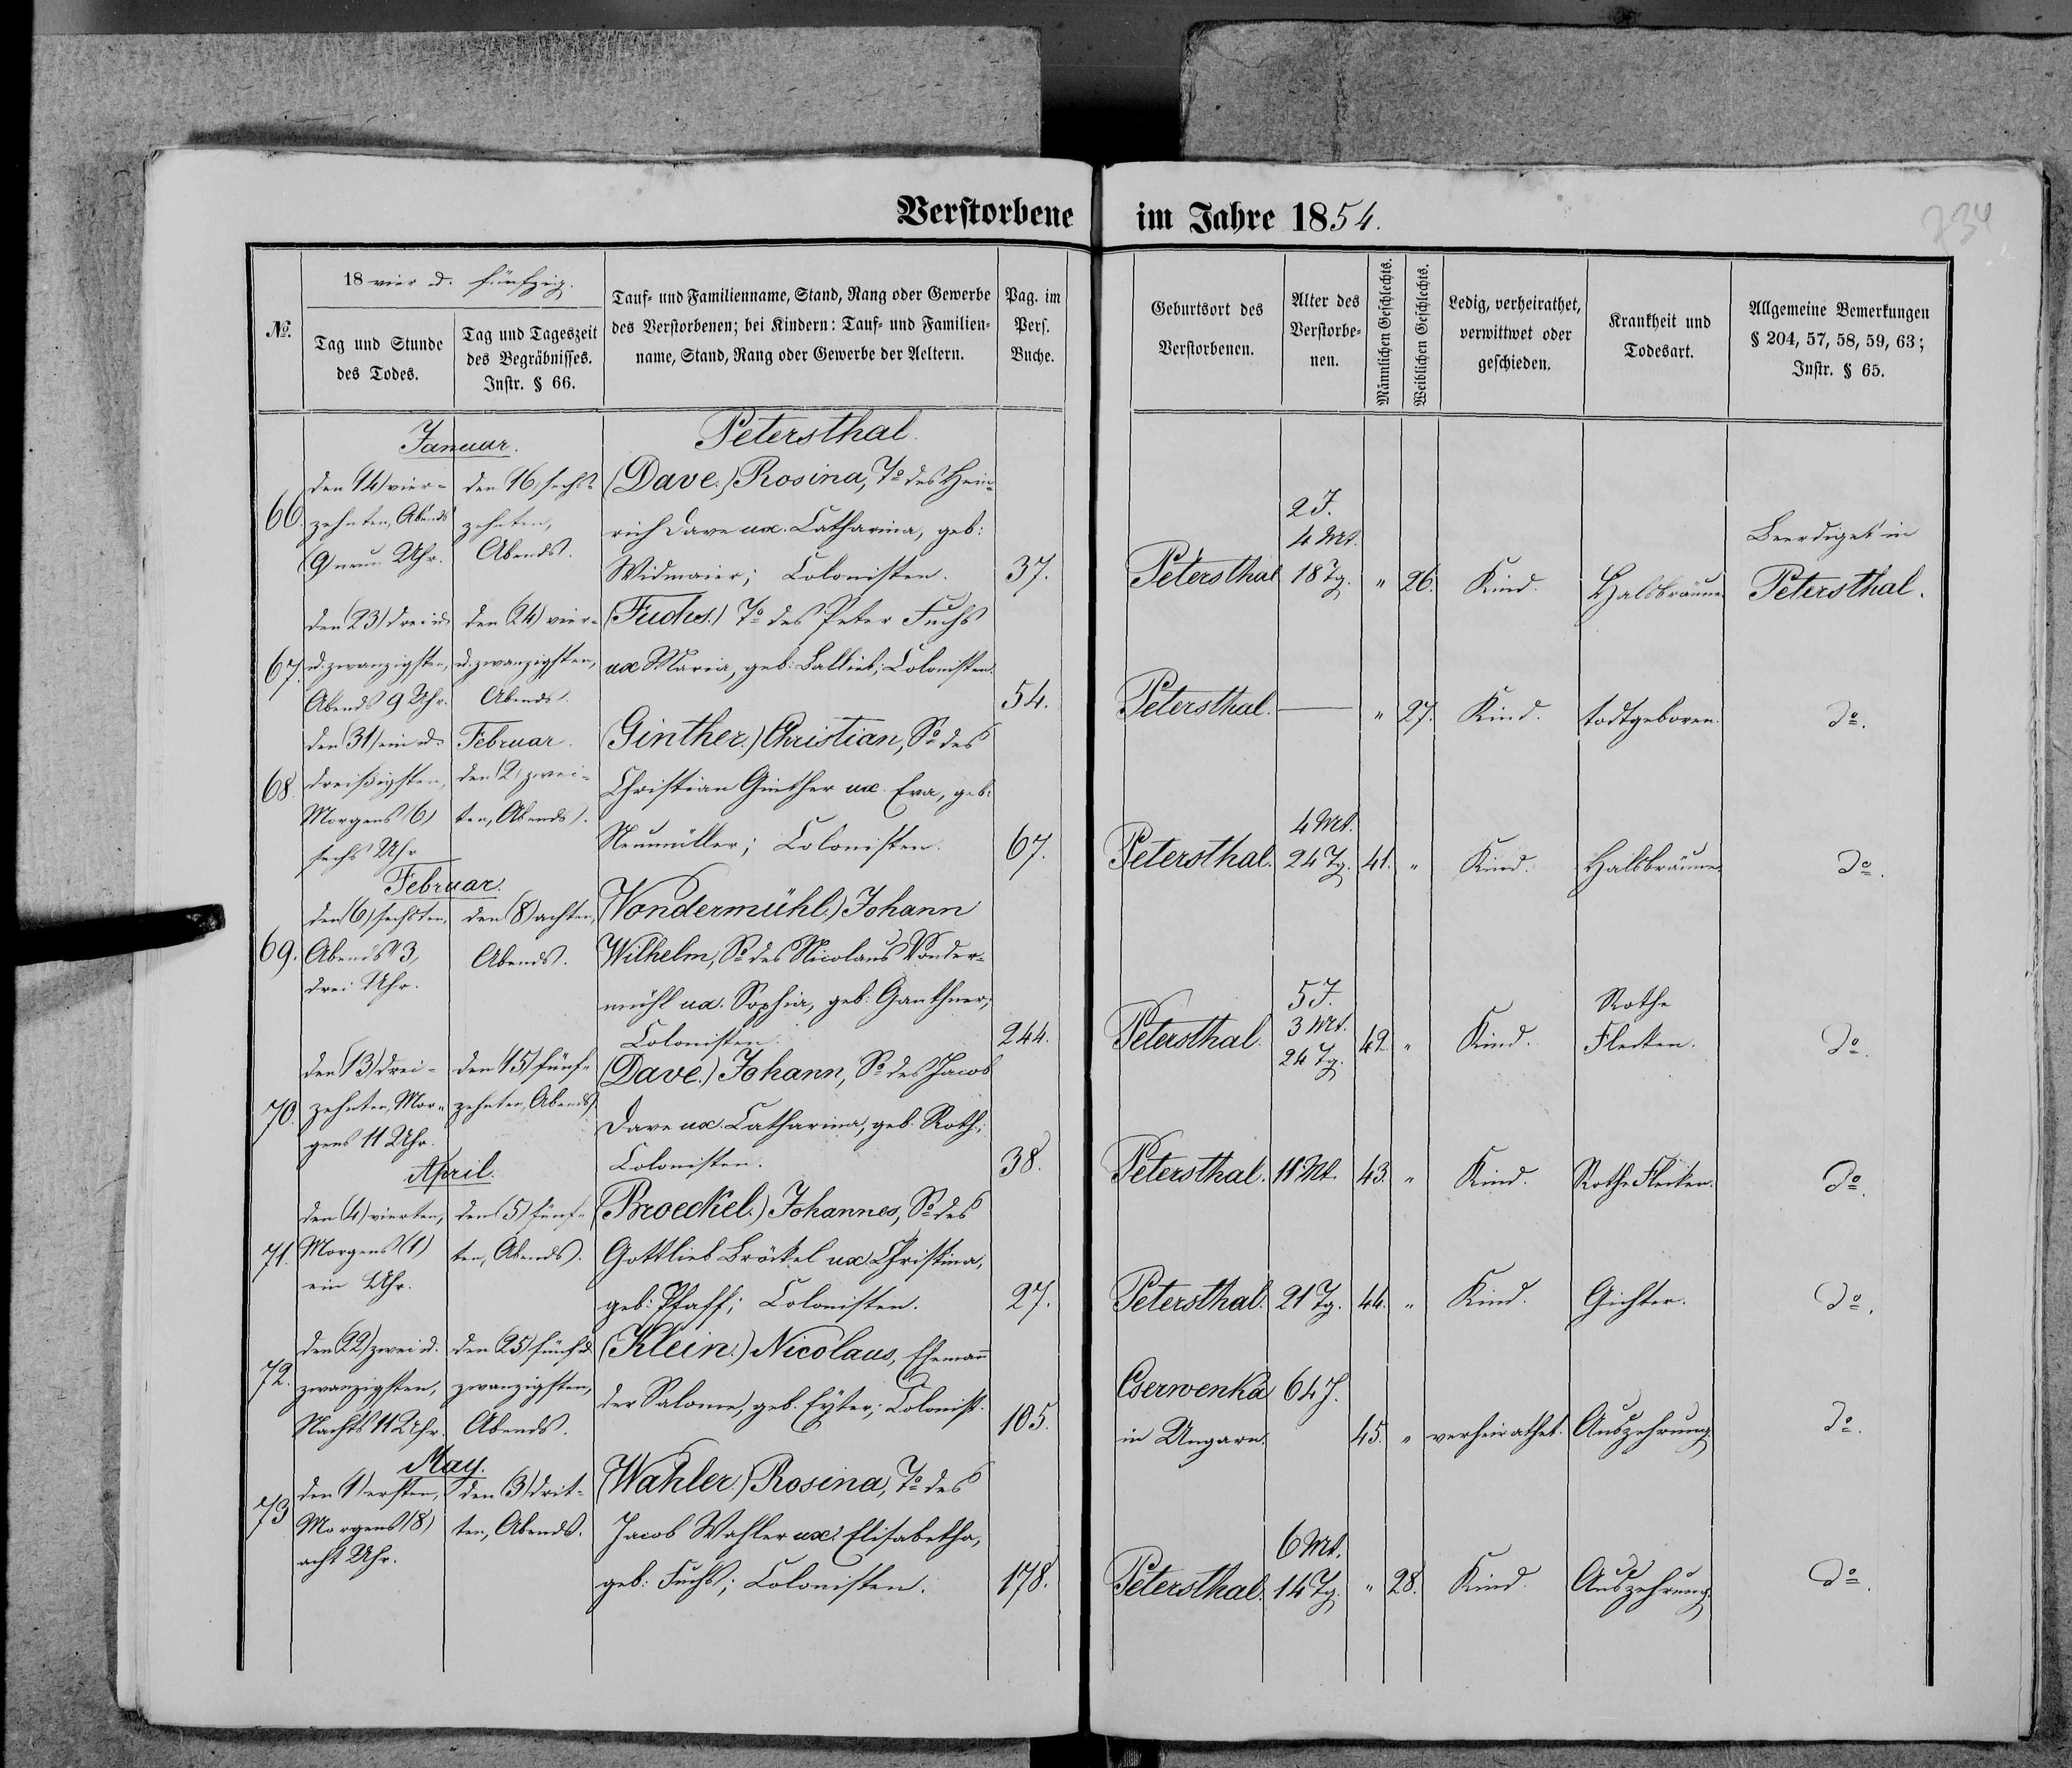 Verstorbene im Jahre 1854.
734
№.
18 vier u. fünfzig.
Tag und Stunde
des Todes.
Tag und Tageszeit
des Begräbnisses.
Instr. § 66.
Tauf- und Familienname, Stand, Rang oder Gewerbe
des Verstorbenen; bei Kindern: Tauf- und Familien-
name, Stand, Rang oder Gewerbe der Aeltern.
Pag. im
Pers.
Buche.
Geburtsort des
Verstorbenen.
Alter des
Verstorbe-
nen.
Männlichen Geschlechts.
Weiblichen Geschlechts.
Ledig, verheirathet,
verwittwet oder
geschieden.
Krankheit und
Todesart.
Allgemeine Bemerkungen
§ 204, 57, 58, 59, 63;
Instr. § 65.
Januar.
Petersthal.
66.
den 14) vier-
zehnten, Abends
(9) neun Uhr.
den 16) sechs-
zehnten,
Abends.
(Dave.) Rosina, To des Hein-
rich Dave ux. Catharina, geb:
Widmaier; Colonisten.
37.
Petersthal
2 J.
4 Mt.
18 Tg.
" 26.
Kind.
Halsbräune
Beerdiget in
Petersthal.
67.
den (23) drei u.
u. zwanzigsten,
Abends 9 Uhr.
den (24) vier-
u. zwanzigsten,
Abends.
(Fuchs.) To des Peter Fuchs
ux Maria, geb: Balliet; Colonisten.
54.
Petersthal.
—
" 27.
Kind.
todtgeboren.
do.
68.
den (31) ein u.
dreißigsten,
Morgens (6)
sechs Uhr
Februar.
den (2) zwei-
ten, Abends.
(Ginther.) Christian, So des
Christian Ginther ux. Eva, geb:
Neumüller; Colonisten.
67.
Petersthal.
4 Mt.
24 Tg.
41. "
Kind.
Halsbräune
do.
Februar.
69.
den (6) sechsten,
Abends 3,
drei Uhr.
den (8) achten,
Abends.
(Vondermühl.) Johann
Wilhelm, So des Nicolaus Vonder-
mühl ux. Sophia, geb: Ganthner;
Colonisten.
244.
Petersthal.
5 J.
3 Mt.
24 Tg.
42. "
Kind.
Rothe
Flecken.
do.
70.
den (13) drei-
zehnten, Mor-
gens 11 Uhr.
den (15) fünf-
zehnten, Abends.
(Dave.) Johann, So des Jacob
Dave ux. Catharina, geb. Roth;
Colonisten.
38.
Petersthal.
11 Mt.
43. "
Kind.
Rothe Flecken.
do.
April.
71.
den (4) vierten,
Morgens (1)
ein Uhr.
den (5) fünf-
ten, Abends.
(Broeckel.) Johannes, So des
Gottlieb Bröckel ux. Christina,
geb: Pfaff; Colonisten.
27.
Petersthal.
21 Tg.
44. "
Kind.
Gichter.
do.
72.
den (22) zwei u.
zwanzigsten,
Nachts 11 Uhr.
den (25) fünf u.
zwanzigsten,
Abends.
(Klein.) Nicolaus, Ehemann
der Salome, geb. Eyter; Colonist.
105.
Cserwenka
in Ungarn.
64 J.
45. "
verheirathet.
Auszehrung.
do.
May.
73
den (1) ersten,
Morgens (8)
acht Uhr.
den (3) drit-
ten, Abends.
(Wahler.) Rosina, To des
Jacob Wahler ux: Elisabetha,
geb: Fuchs; Colonisten.
178.
Petersthal.
6 Mt.
14 Tg.
" 28.
Kind.
Auszehrung.
do.